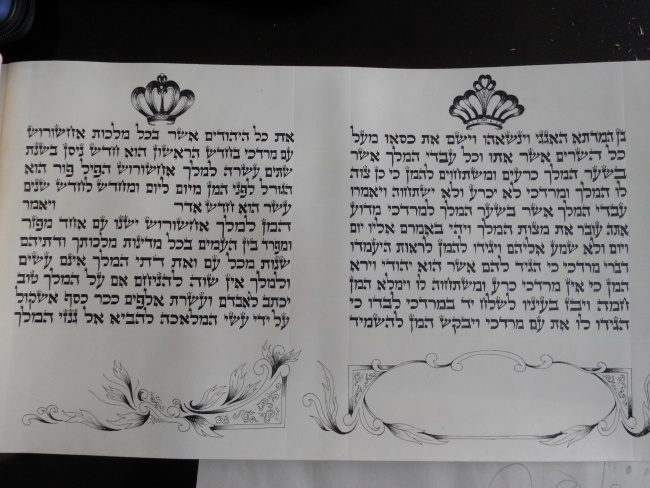 בן המדתא האגגי וינשאהו וישם את כסאו מעל
כל השרים אשר אתו וכל עבדי המלך אשר
בשער המלך כרעים ומשתחוים להמן כי כן צוה
לו המלך ומרדכי לא יכרע ולא ישתחוה ויאמרו
עבדי המלך אשר בשער המלך למרדכי מדוע
אתה עובר את מצות המלך ויהי באמרם אליו יום
ויום ולא שמע אליהם ויגידו להמן לראות היעמדו
דברי מרדכי כי הגיד להם אשר הוא יהודי וירא
המן כי אין מרדכי כרע ומשתחוה לו וימלא המן
חמה ויבז בעיניו לשלח יד במרדכי לבדו כי
הגידו לו את עם מרדכי ויבקש המן להשמיד
את כל היהודים אשר בכל מלכות אחשורוש
עם מרדכי בחדש הראשון הוא חדש ניסן בשנת
שתים עשרה למלך אחשורוש הפיל פור הוא
הגורל לפני המן מיום ליום ומחדש לחדש שנים
עשר הוא חדש אדר ויאמר
המן למלך אחשורוש ישנו עם אחד מפזר
ומפרד בין העמים בכל מדינות מלכותך ודתיהם
שנות מכל עם ואת דתי המלך אינם עשים
ולמלך אין שוה להניחם אם על המלך טוב
יכתב לאבדם ועשרת אלפים ככר כסף אשקול
על ידי עשי המלאכה להביא אל גנזי המלך